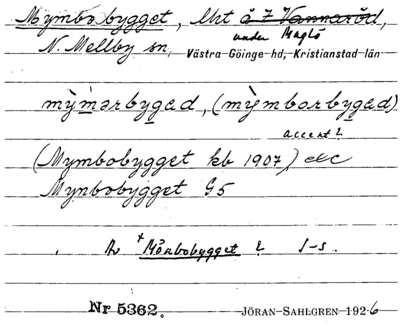 Mymbobygget, lht å 7 Vannaröd,
under Maglö
N. Mellby sn, Västra Göinge hd, Kristianstad län
mỳm̀ərbygəd, (mỳmborbygəd)
accent?
(Mymbobygget kb 1907) etc
Mynbobygget G5
Av + Mörbobygget ? J-s.
Nr 5362. JÖRAN SAHLGREN 1926